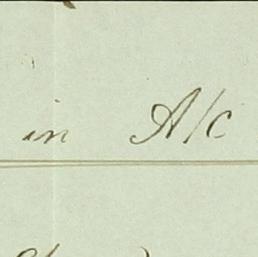 in A/c